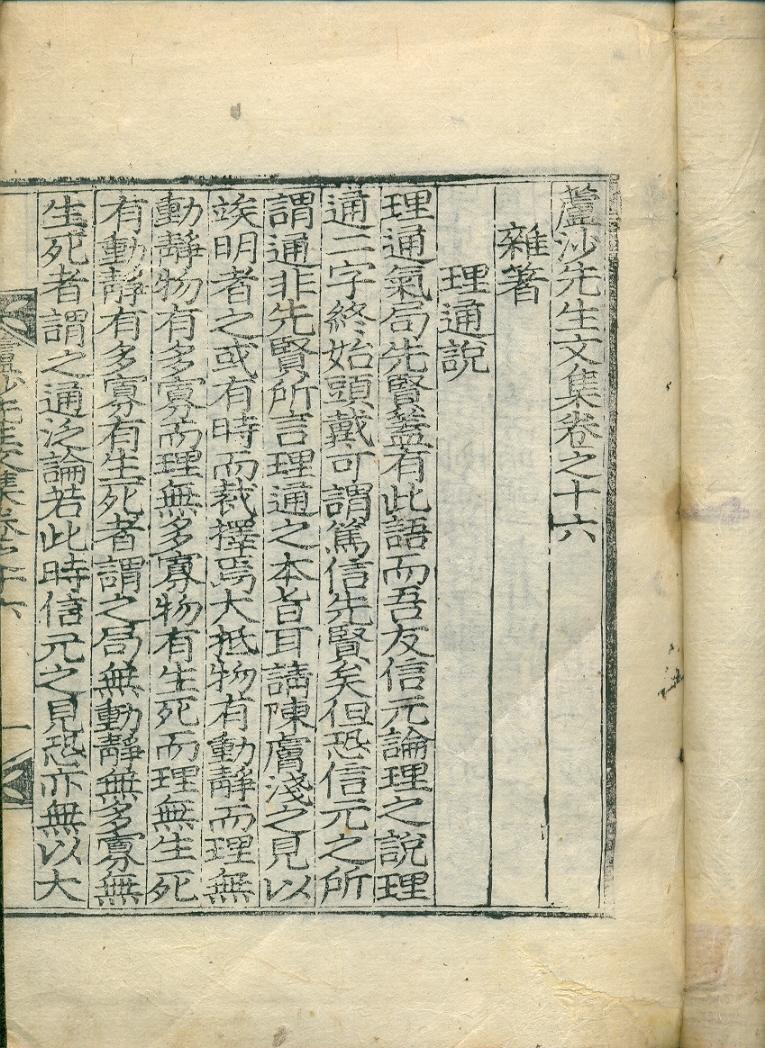 蘆沙先生文集卷之十六
雜著
理通說
理通氣局先賢蓋有此語而吾友信元論理之說理
通二字終始頭戴可謂篤信先賢矣但恐信元之所
謂通非先賢所言理通之本旨耳請陳膚淺之見以
竢明者之或有時而裁擇焉大抵物有動靜而理無
動靜物有多寡而理無多寡物有生死而理無生死
有動靜有多寡有生死者謂之局無動靜無多寡無
生死者謂之通泛論若此時信元之見恐亦無以大
蘆沙先生文集卷之十六
一